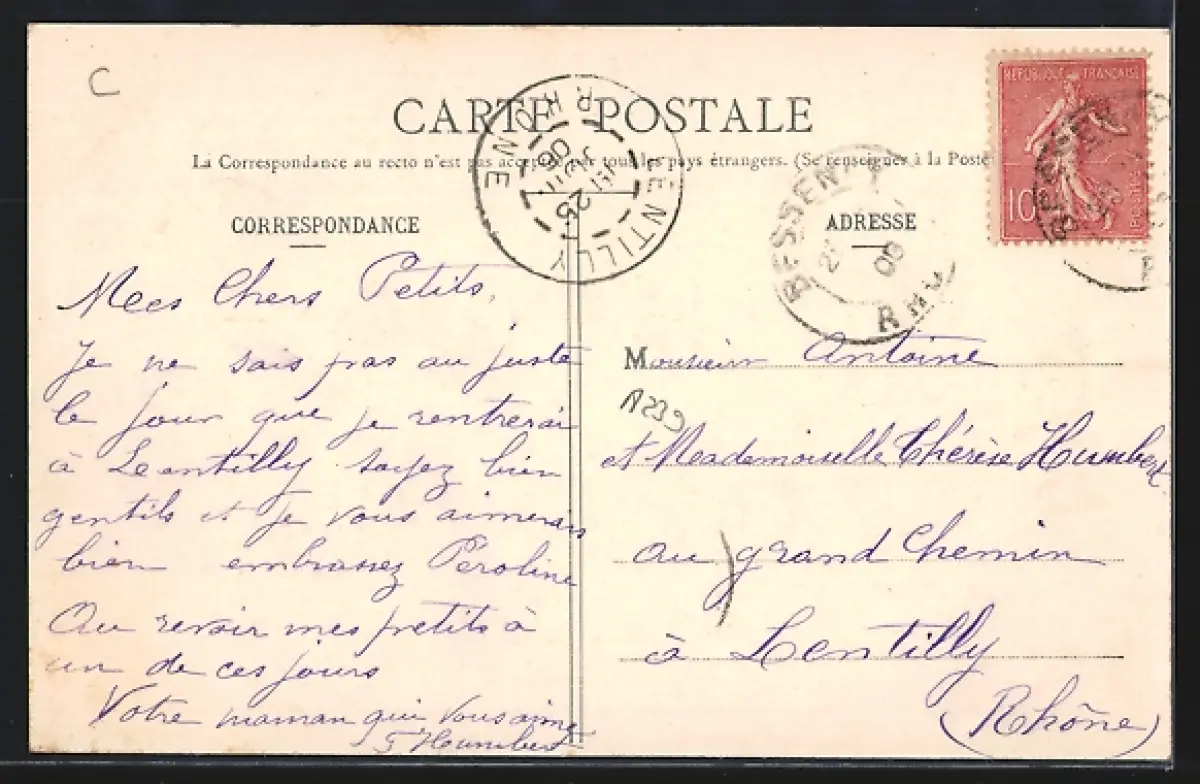 C
CARTE POSTALE
La Correspondance au recto n'est pas acceptée par tous les pays étrangers. (Se renseigner à la Poste
CORRESPONDANCE
Mes Chers Petits,
Je ne sais pas au juste
le jour que je rentrerai
à Lentilly soyez bien
gentils et je vous aimerais
bien embrassez Péroline
Au revoir mes petits à
un de ces jours
Votre maman qui vous aime
Humbert
LENTILLY
RHONE
25
JUIL
06
BESSENAY
09
ADRESSE
REPUBLIQUE FRANÇAISE
10
POSTES
Monsieur Antoine
et Mademoiselle Thérèse Humbert
au grand Chemin
à Lentilly
(Rhône)